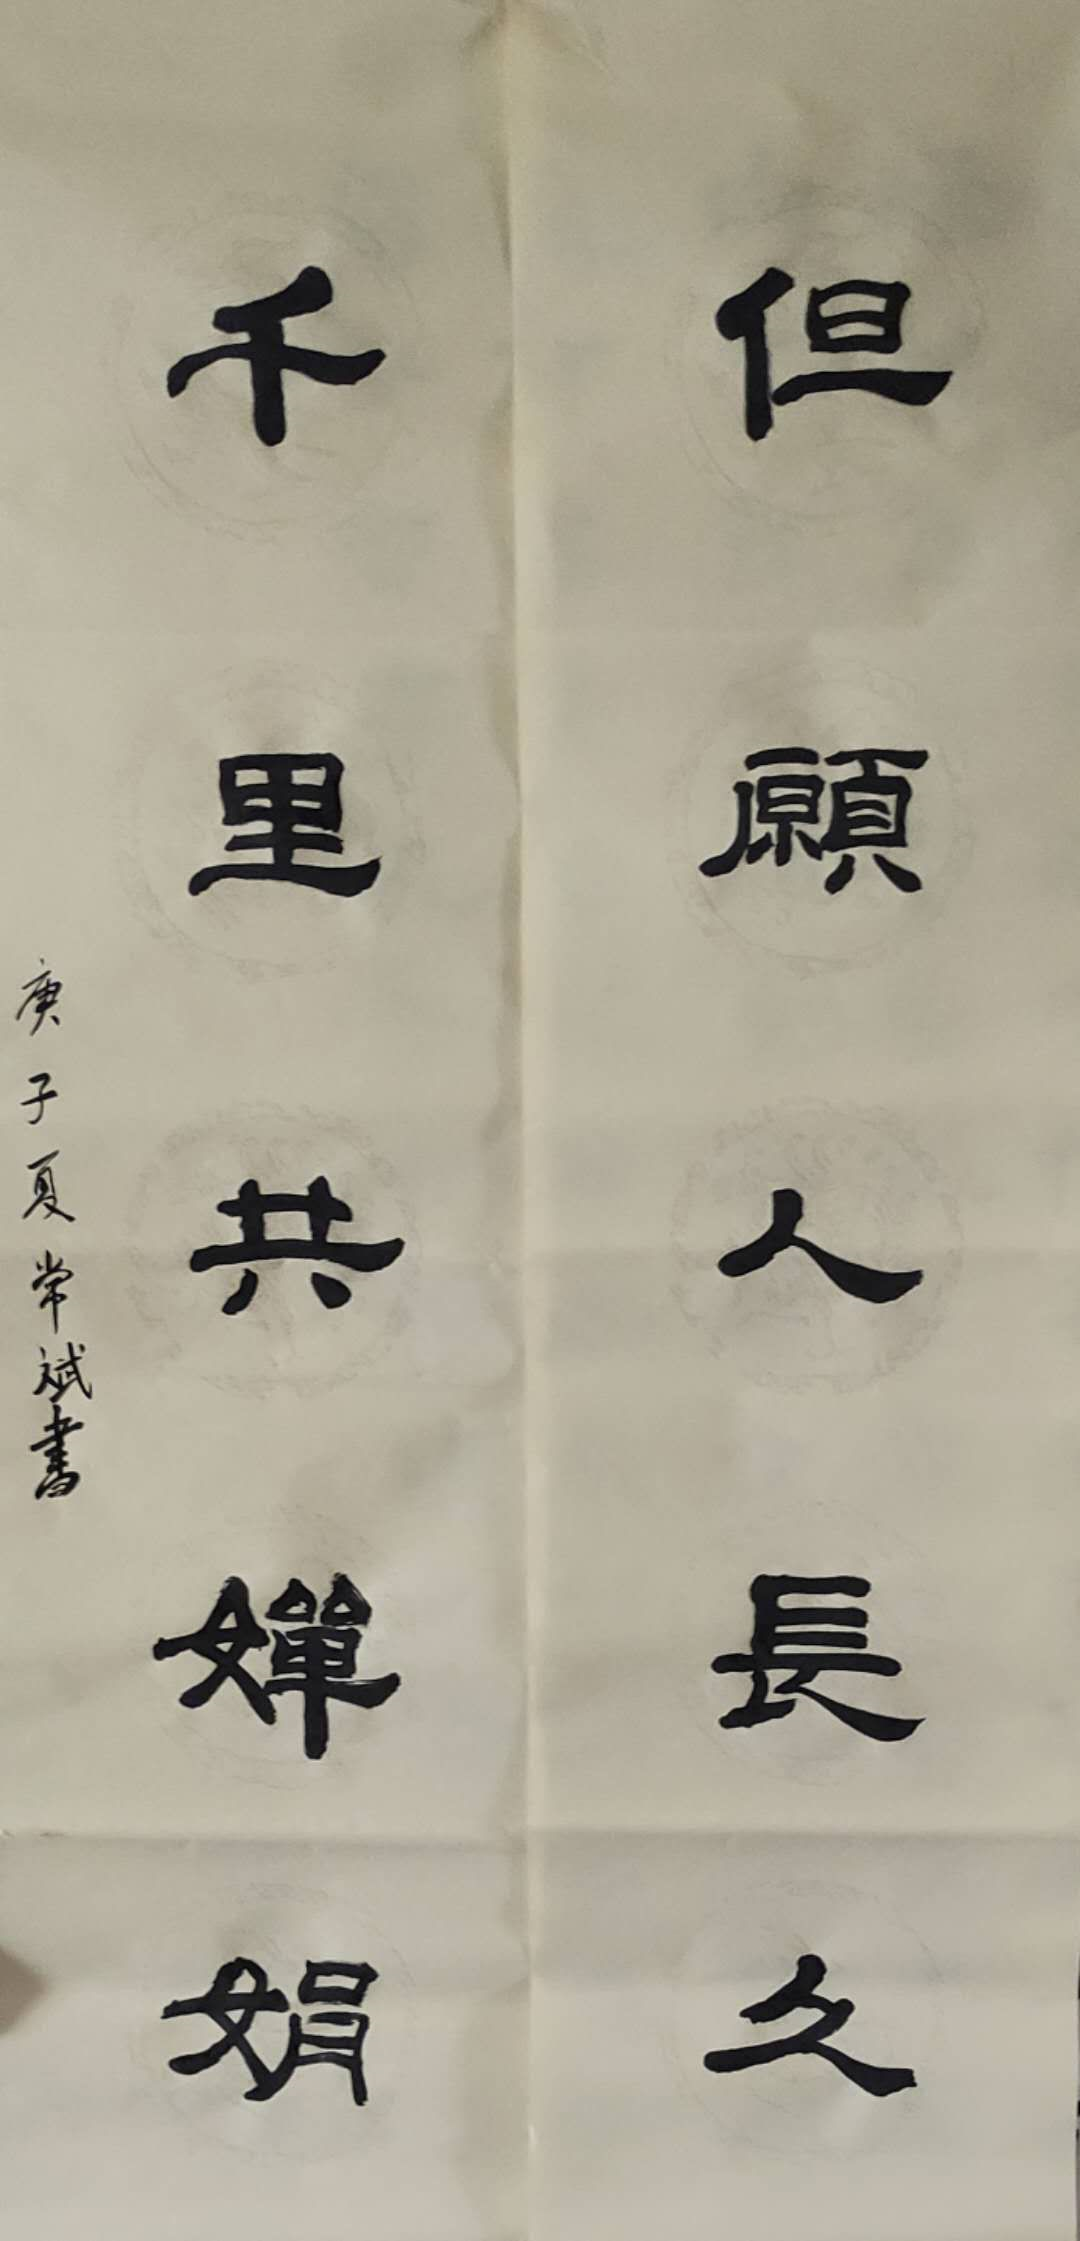 但願人長久
千里共嬋娟
庚子夏常斌書